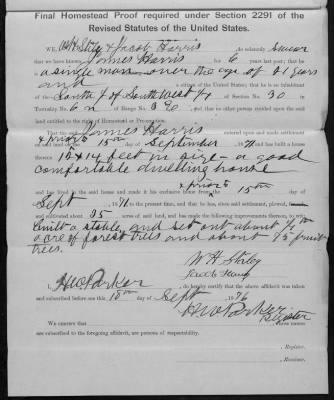 Final Homestead Proof required under Section 2291 of the
Revised Statutes of the United States.
WE, W H Staley & Jacob Harris do solemnly Swear
that we have known James Harris for 6 years last past; that he
a single man over the age of 21 years
and a citizen of the United States; that he is an inhabitant of
the South ½ of South West ¼ of Section No. 30 in
Township No. 6 N of Range No. and that no other person resided upon the said
land entitled to the right of Homestead or Preemption.
That the said James Harris entered upon and made settlement
& prior to 15th September 1871 and has built a house
thereon 12 x 14 feet in size - a good
comfortable dwelling house
and has lived in the said house and made it his exclusive home from the & prior to 15th day of
Sept 1871 to the present time, and that he has, since said settlement, plowed,
and cultivated about 35 acres of said land, and has made the following improvements thereon, to wit:
built a stable, and set out about ½ an
acre of forest trees and about 75 fruit
trees.
W H Staley
Jacob Harris
I, H W Parker do hereby certify that the above affidavit was taken
and subscribed before me this 18th day of Sept 1876
H W Parker
Register
We certify that whose names
are subscribed to the foregoing affidavit, are persons of respectability.
, Register.
, Receiver.